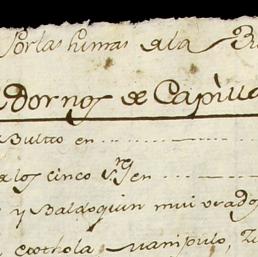 Por las himas de la
Adornos de Capilla
Bulto en
a los cinco Srs en
y Baldoquin mui vsados
Estola Manipulo,